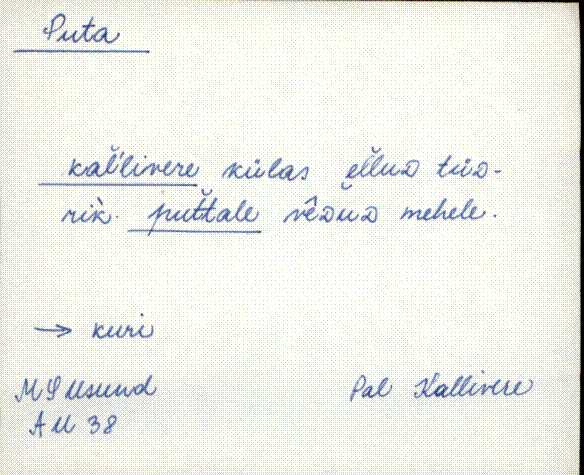 Puta
kal̆'livere külas el̆luᴅ tüᴅ-
rik. put̆tale vêᴅŭᴅ mehele.
→ kuri
AU 38
Pal Kallivere